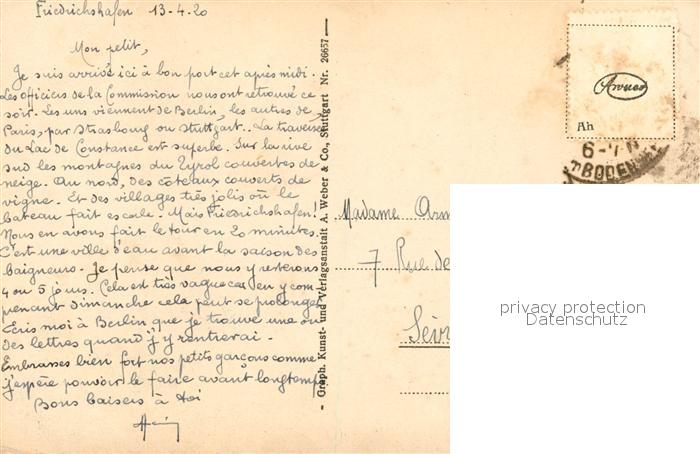 Friedrichshafen 13-4-20
Mon petit,
Je suis arrivé ici à bon port cet après midi.
Les officiers de la Commission nous ont retrouvé ce
soir. Les uns viennent de Berlin, les autres de
Paris, par Strasbourg ou Stuttgart.. La traversée
du Lac de Constance est superbe. Sur la rive
sud les montagnes du Tyrol couvertes de
neige. Au nord, des côteaux couverts de
vigne. Et des villages très jolis où le
bateau fait escale. Mais Friedrichshafen!
Nous en avons fait le tour en 20 minutes.
C'est une ville d'eau avant la saison des
baigneurs. Je pense que nous y resterons
4 ou 5 jours. Cela est très vague car en y com-
prenant dimanche cela peut se prolonger
Ecris moi à Berlin que je trouve une ou
des lettres quand j'y rentrerai.
Embrasses bien fort nos petits garçons comme
j'espère pouvoir le faire avant longtemps
Bons baisers à toi
- Graph. Kunst- und Verlagsanstalt A. Weber & Co., Stuttgart Nr. 26657 -
Ah
6-7 N
BODEN
Madame
7 Rue de
Sèv
privacy protection
Datenschutz